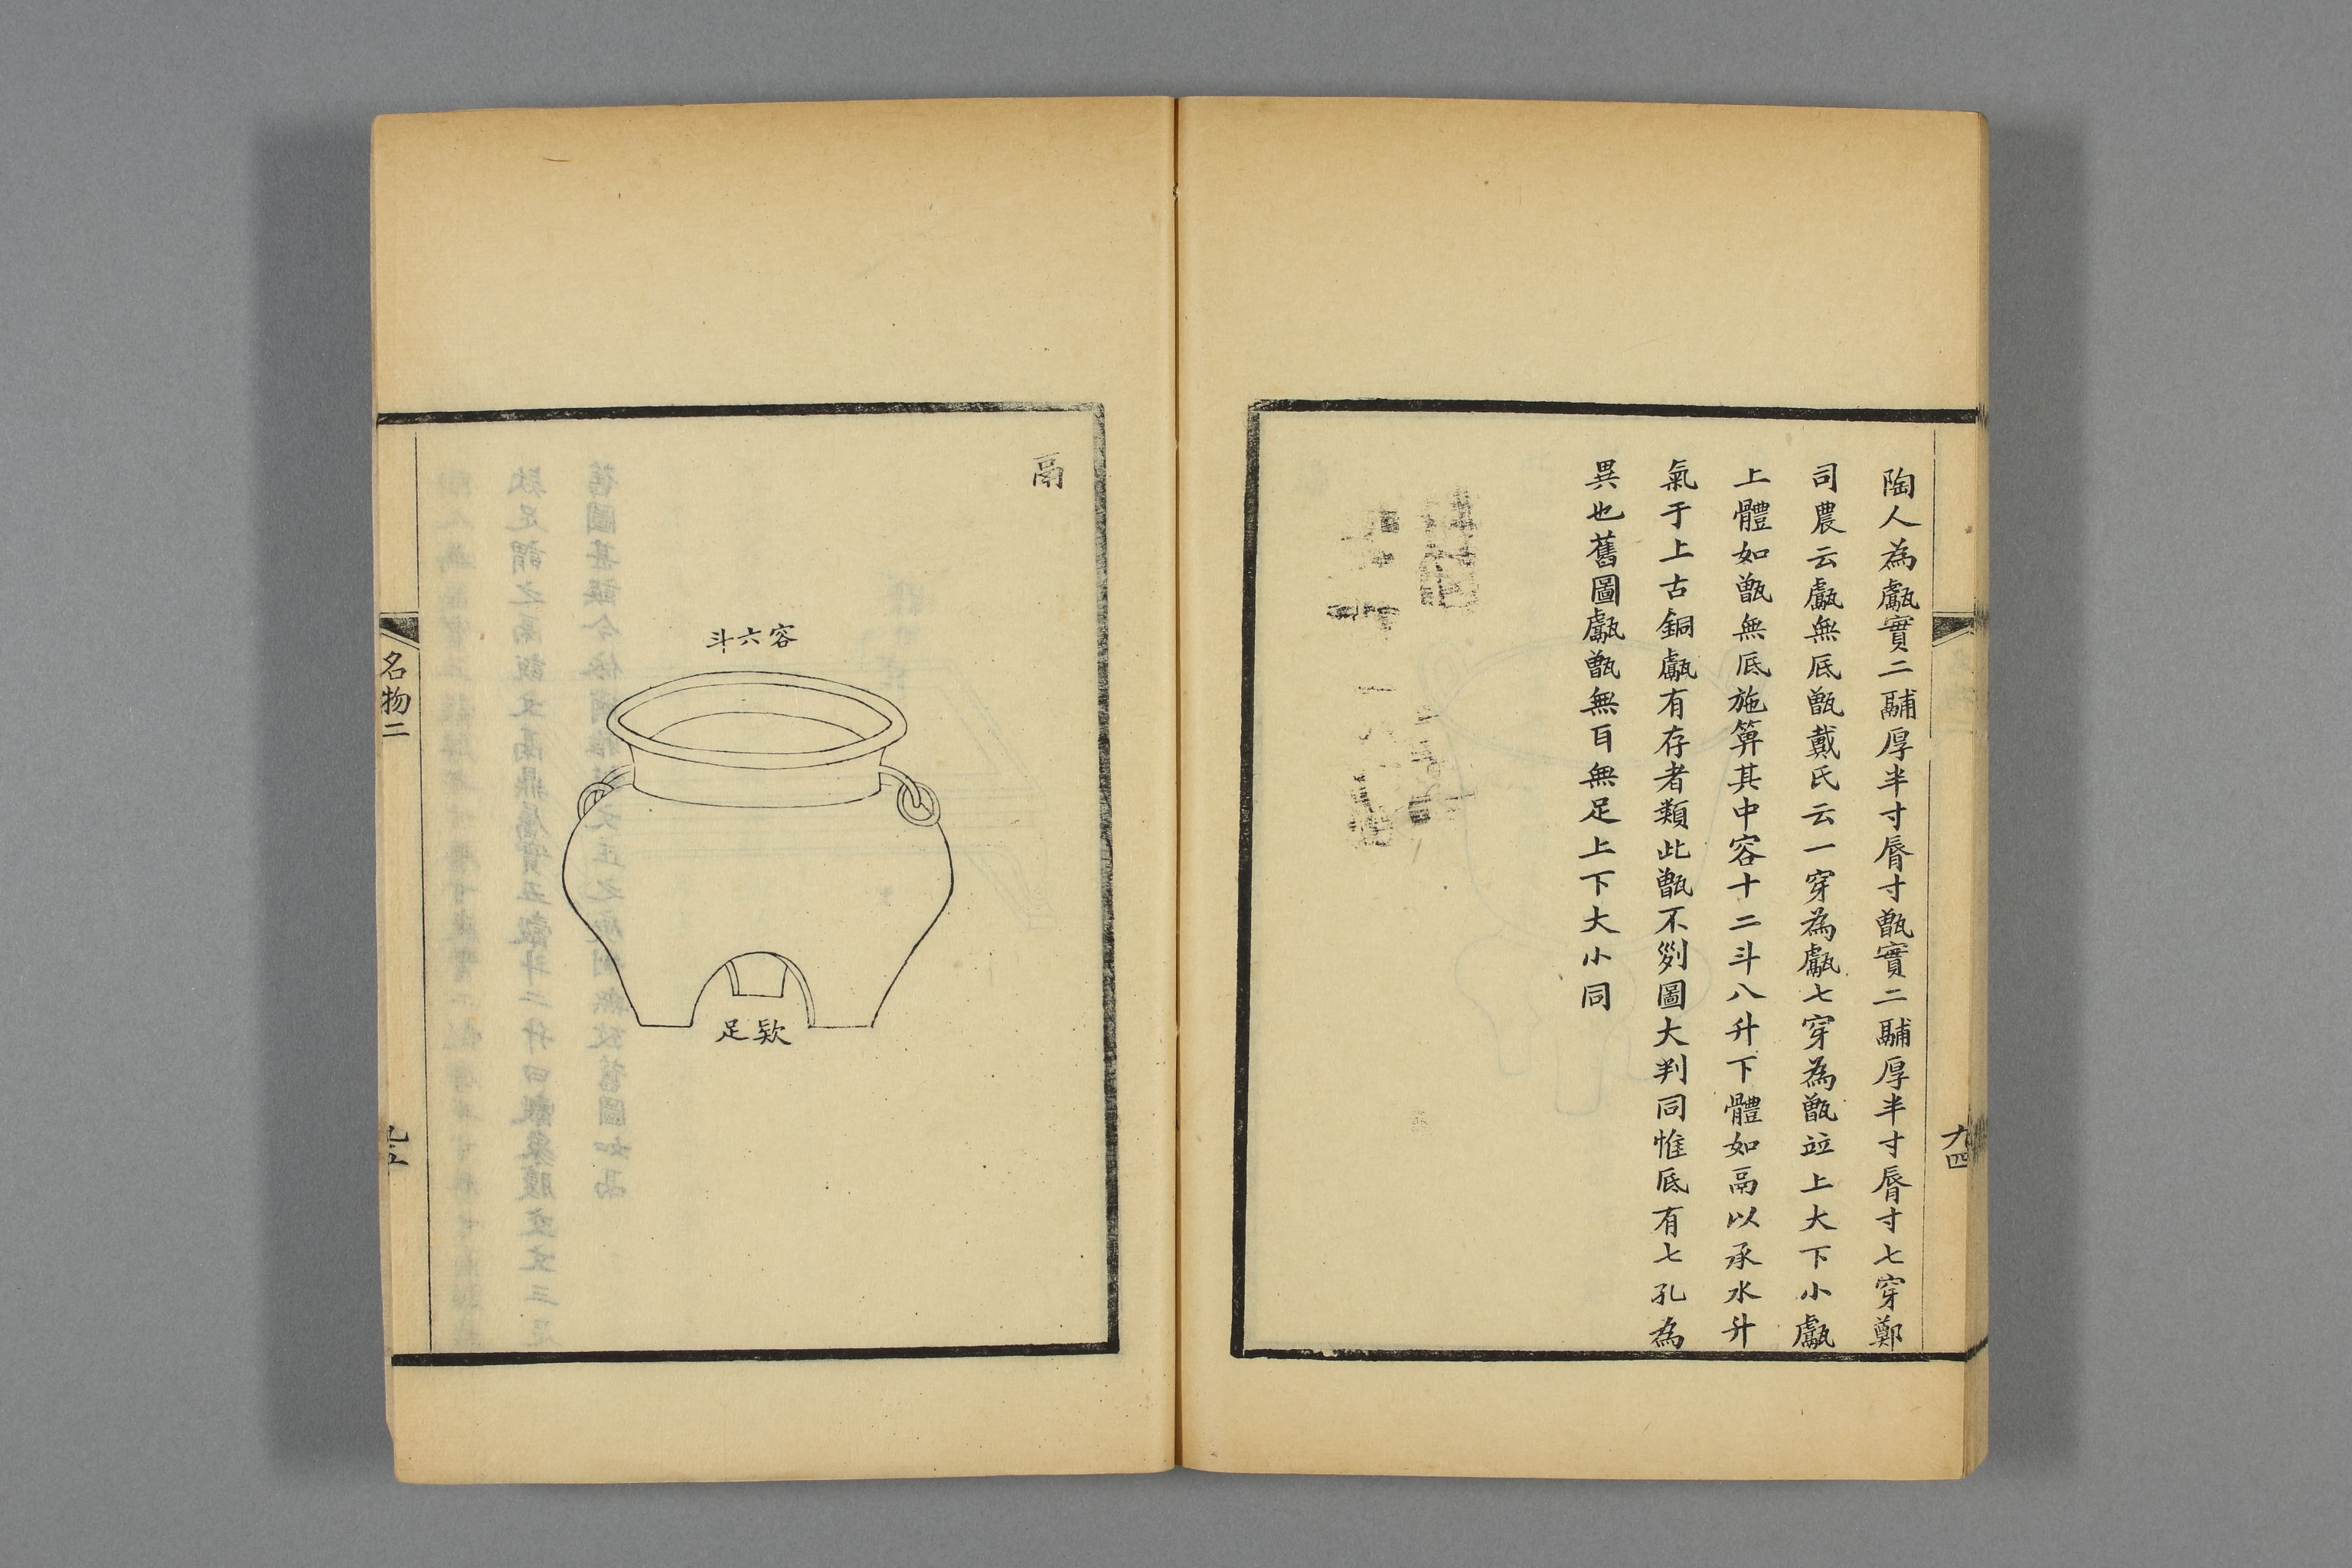 陶人為甗實二鬴厚半寸脣寸甑實二鬴厚半寸脣寸七穿鄭
司農云甗無底甑戴氏云一穿為甗七穿為甑竝上大下小甗
上體如甑無底施箅其中容十二斗八升下體如鬲以承水升
氣于上古銅甗有存者類此甑不别圖大判同惟底有七孔為
異也舊圖甗甑無耳無足上下大小同
九四
鬲
容六斗
款足
名物二
九五